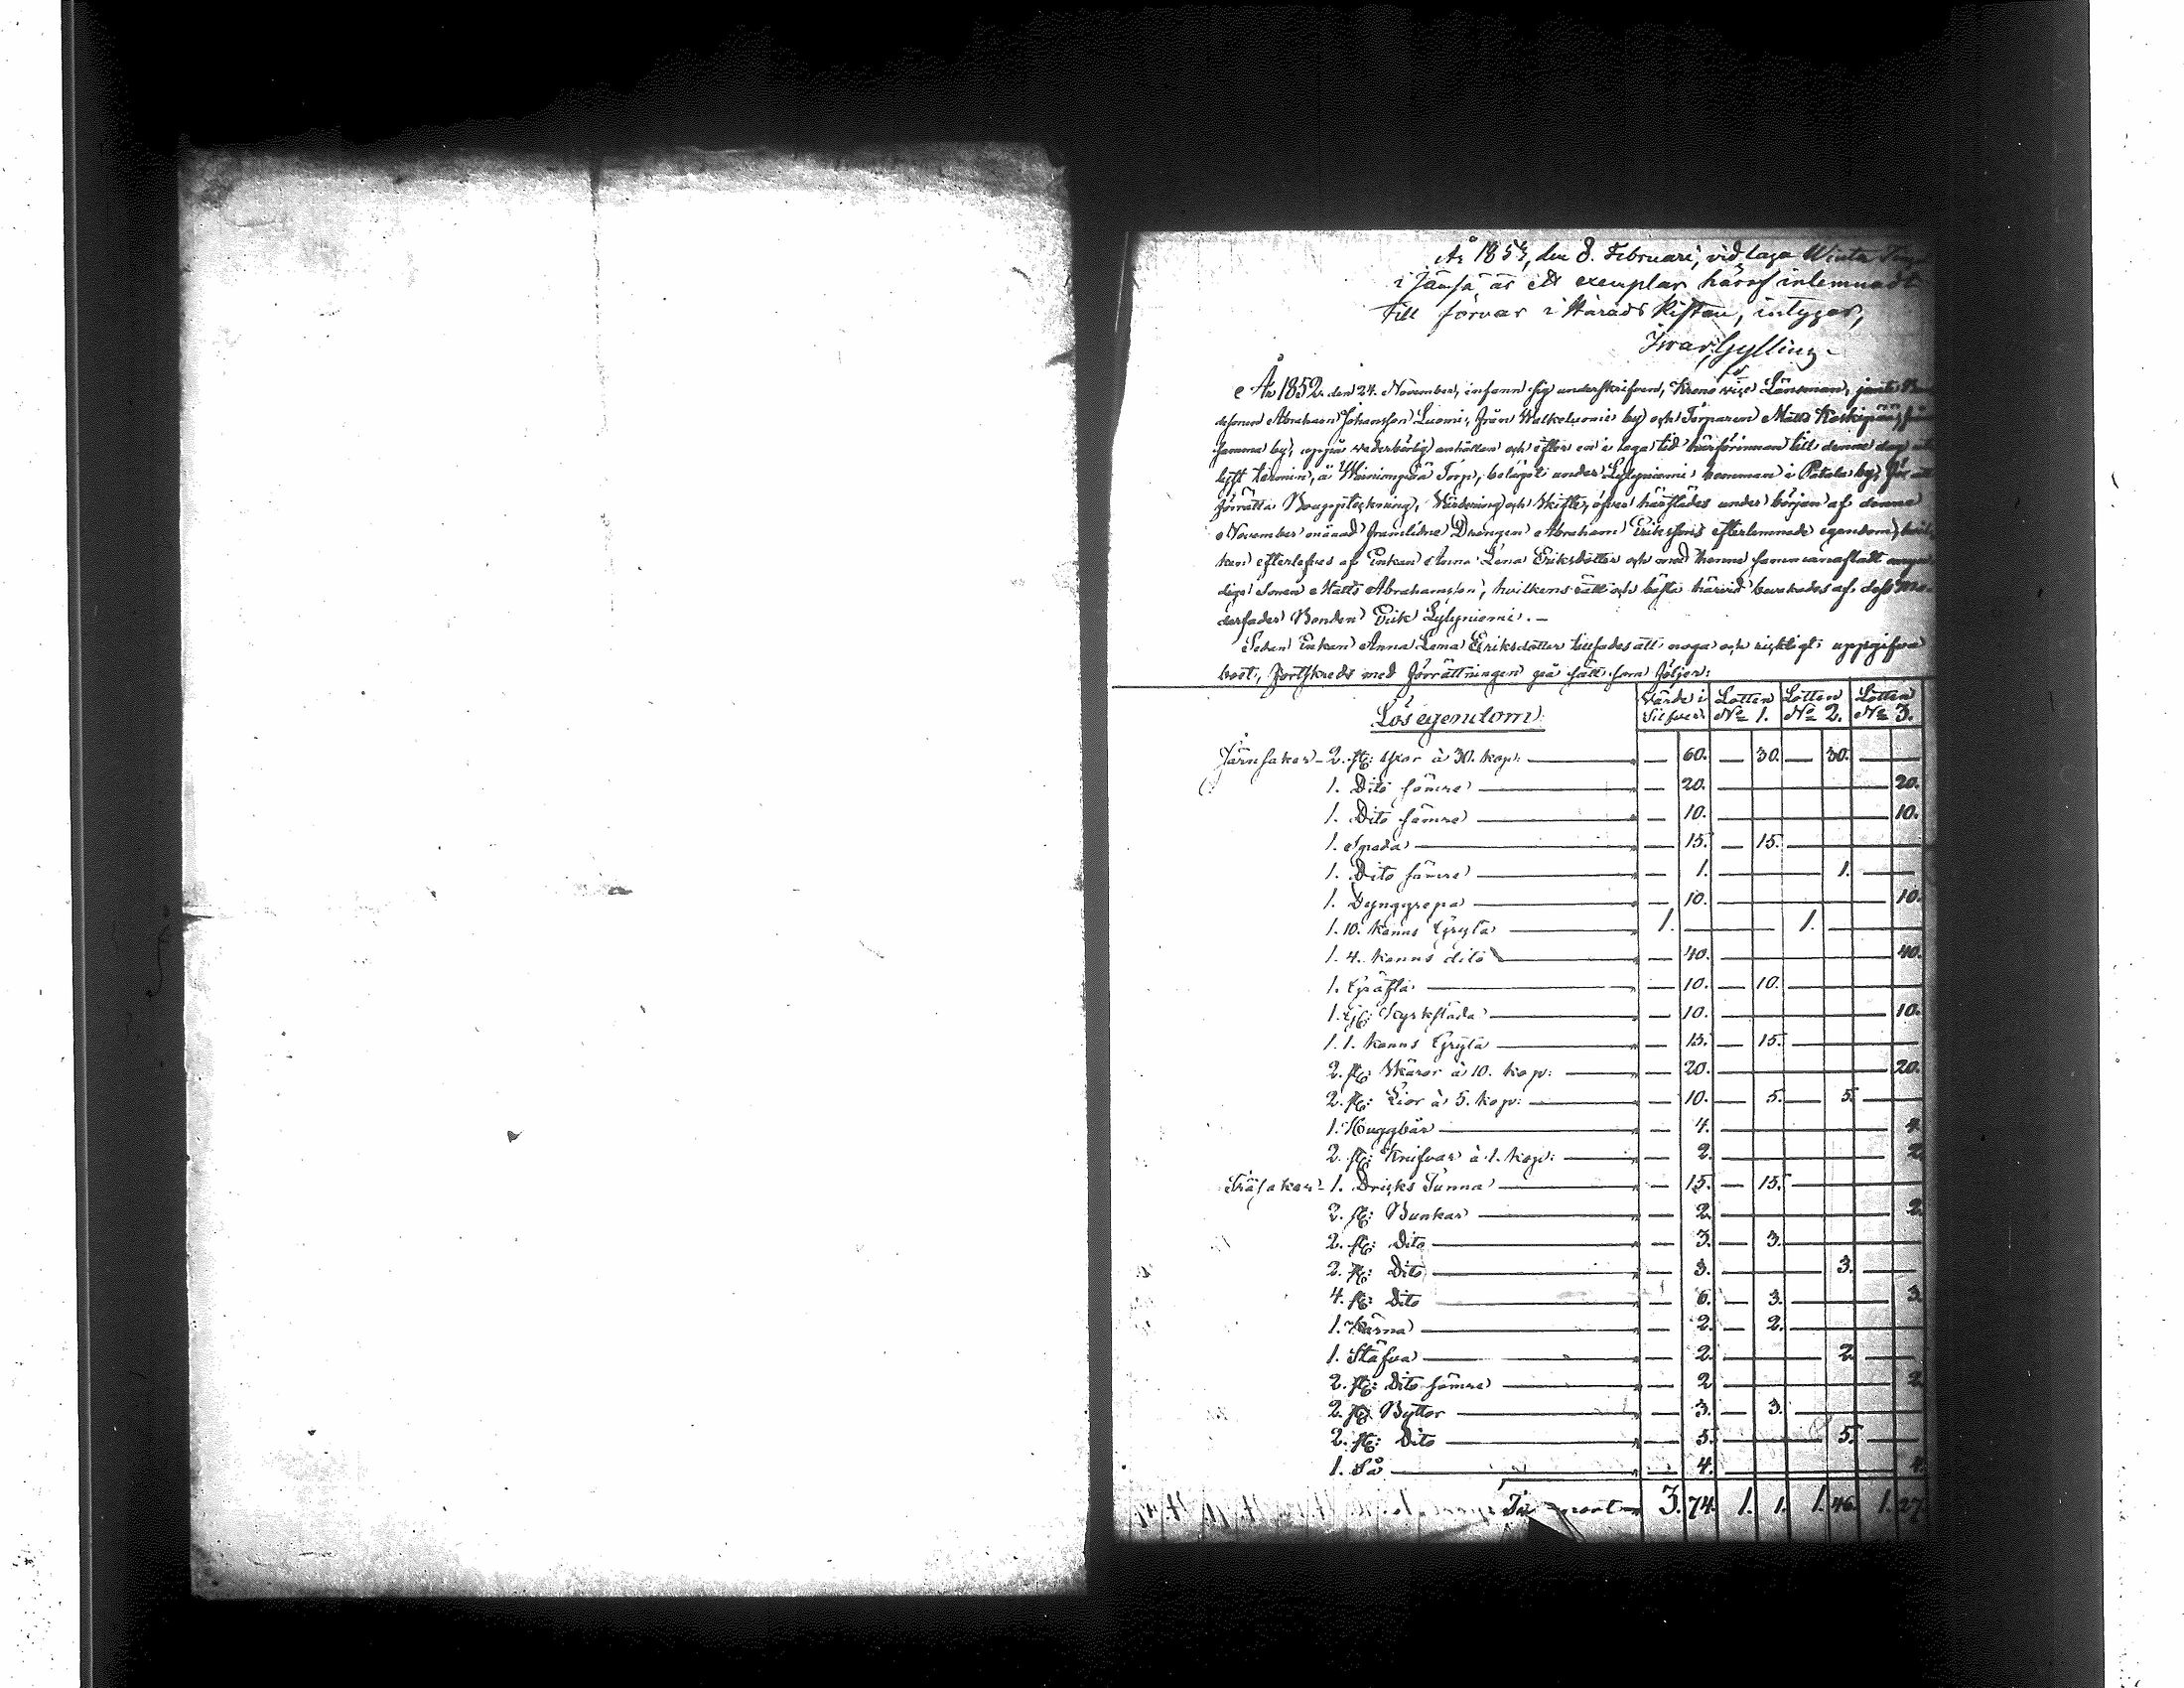 År 1853, den 8. Februari, vid laga Winter Ting
i Jämsä är ett exemplar häraf inlemnadt
till förvar i Härads Kistan, intygar,
Iwar Gylling
År 1852 den 24. November, infann sig underskrifven, Krono vice Länsman, jemte Bon-
desonen Abraham Johansson Luomi, från Walkeluomi by och Torparen Matts Koskipää, från
samma by, uppå vederbörlig anhållan och efter en i laga tid härförinnan till denna dag ut-
lyst termin, å Torp, belägit under Lylyniemi hemman i Patala by, för att
förrätta Bouppteckning, Värdering och Skifte, öfver härstädes under början af denna
November månad framlidne Drängen Abraham Erikssons efterlemnade egendom, hvil-
ken efterlefves af Enkan Anna Lena Eriksdotter och med henne sammanaflade omyn-
dige Sonen Matts Abrahamsson, hvilkens rätt och bästa härvid bevakades af dess Mo-
derfader Bonden Erik Lylyniemi. —
Sedan Enkan Anna Lena Eriksdotter tillsades att noga och riktigt uppgifva
boet, fortskreds med förrättningen på sätt som följer:
Lösegendom. Värde i Silfver. Lotten No 1. Lotten No 2. Lotten No 3.
Järnsaker - 2. st: Yxor à 30. kop: — 60. — 30. — 30. —
1. Dito sämre — 20. — 20.
1. Dito sämre — 10. — 10.
1. Spada — 15. — 15. —
1. Dito sämre — 1. — 1. —
1. Dynggrepa — 10. — 10.
1. 10. kanns Gryta — 1. — 1. —
1. 4. kanns dito — 40. — 40.
1. Gräfta — 10. — 10. —
1. — 10. — 10.
1. 1. kanns Gryta — 15. — 15. —
2. st: Skäror à 10. kop: — 20. — 20.
2. st: Lior à 5. kop: — 10. — 5. — 5. —
1. — 4. — 4.
2. st: Knifvar à 1. kop: — 2. — 2.
Träsaker - 1. Dricks Tunna — 15. — 15. —
2. st: Bunkar — 2. — 2.
2. st: Dito — 3. — 3. —
2. st: Dito — 3. — 3. —
4. st: Dito — 6. — 3. — 3.
1. Kärna — 2. — 2. —
1. Stäfva — 2. — 2. —
2. st: Dito sämre — 2. — 2.
2. st: Byttor — 3. — 3. —
2. st: Dito — 5. — 5. —
1. Så — 4. — 4.
Transport 3. 74. 1. 1. 1. 46. 1. 27.